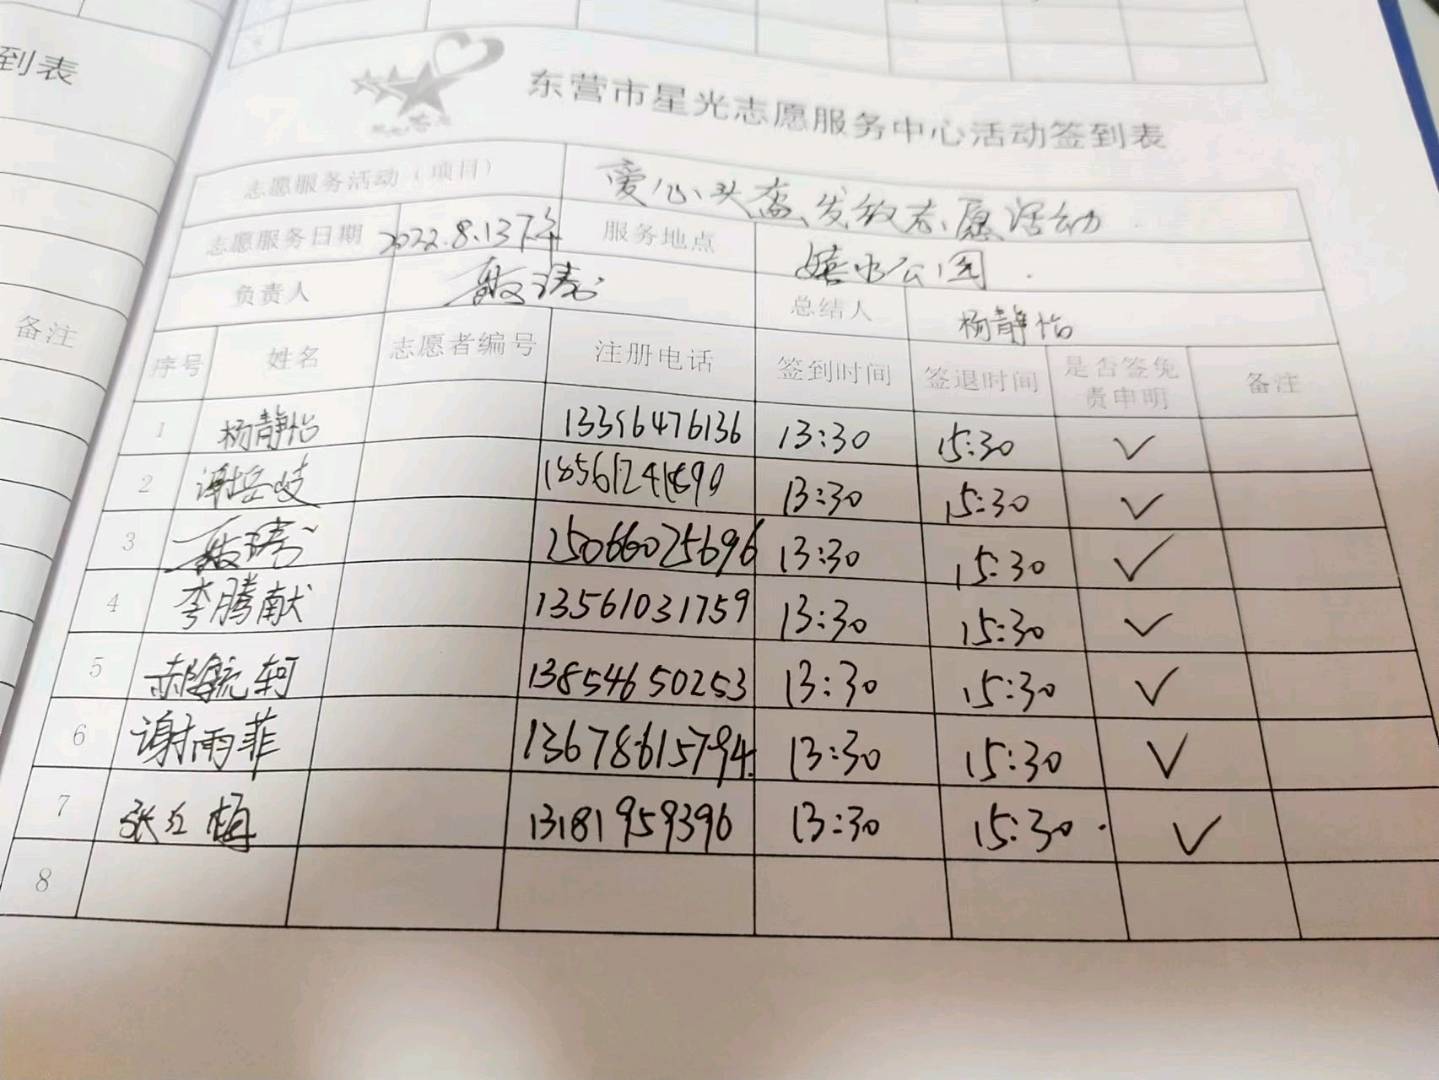 到表
备注
东营市星光志愿服务中心活动签到表
志愿服务活动（项目） 爱心头盔发放志愿活动
志愿服务日期 2022.8.13下午 服务地点 嬉水公园
负责人 总结人 杨静怡
序号 姓名 志愿者编号 注册电话 签到时间 签退时间 是否签免责申明 备注
1 杨静怡 13396476136 13:30 15:30 ✓
2 13:30 15:30 ✓
3 25066025696 13:30 15:30 ✓
4 李腾献 13561031759 13:30 15:30 ✓
5 13854650253 13:30 15:30 ✓
6 谢雨菲 13678615794 13:30 15:30 ✓
7 张红梅 13181959396 13:30 15:30 ✓
8